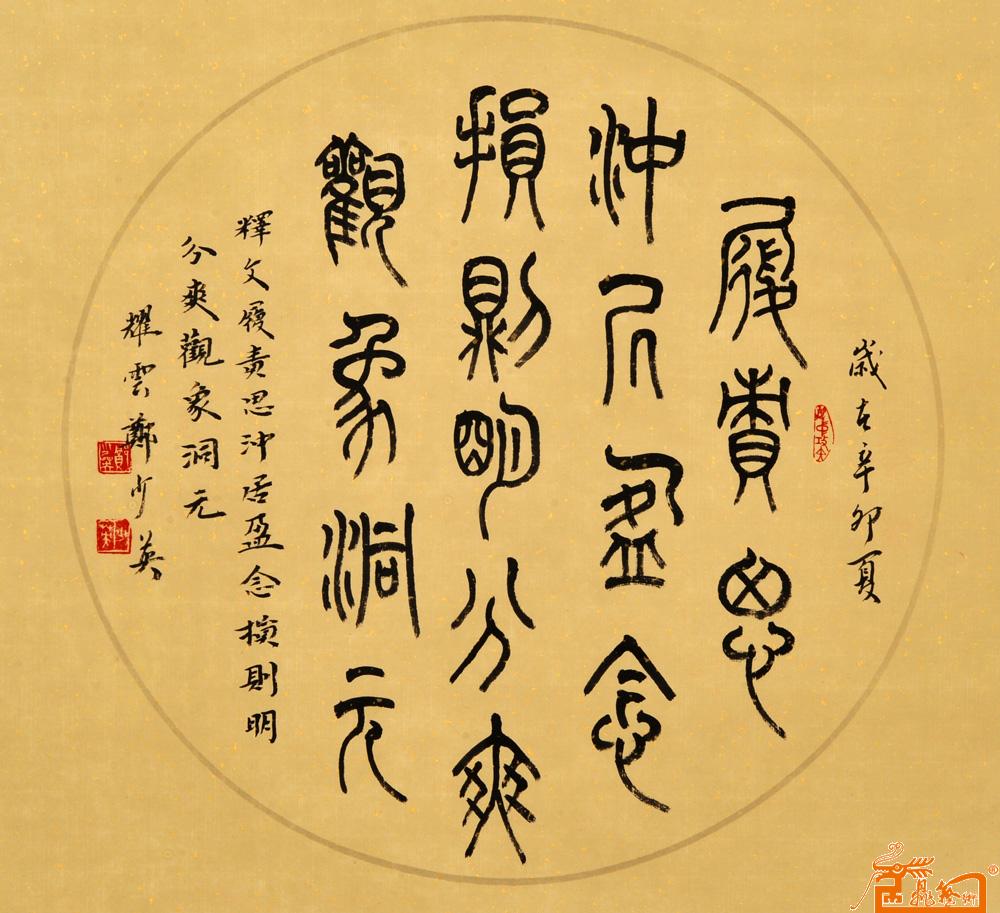 歲在辛卯夏
履責思
沖居盈念
損則明分爽
觀象洞元
釋文履責思沖居盈念損則明
分爽觀象洞元
耀雲鄭少英